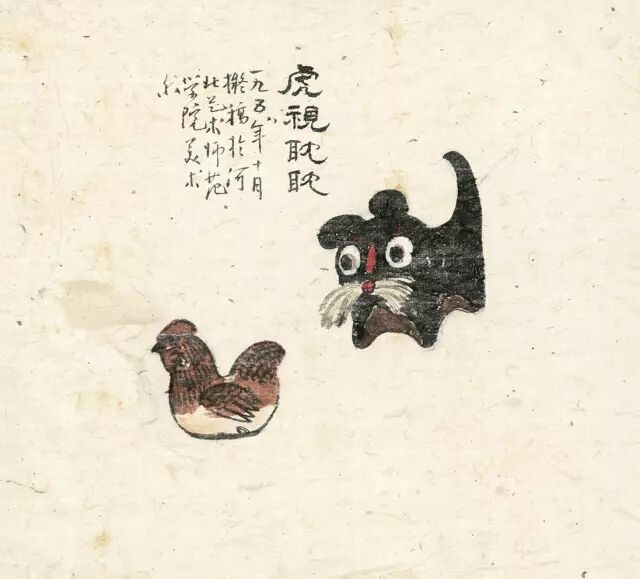 虎視耽耽
一九五八年十月
擬稿於河
北艺术师范
学院美术
系